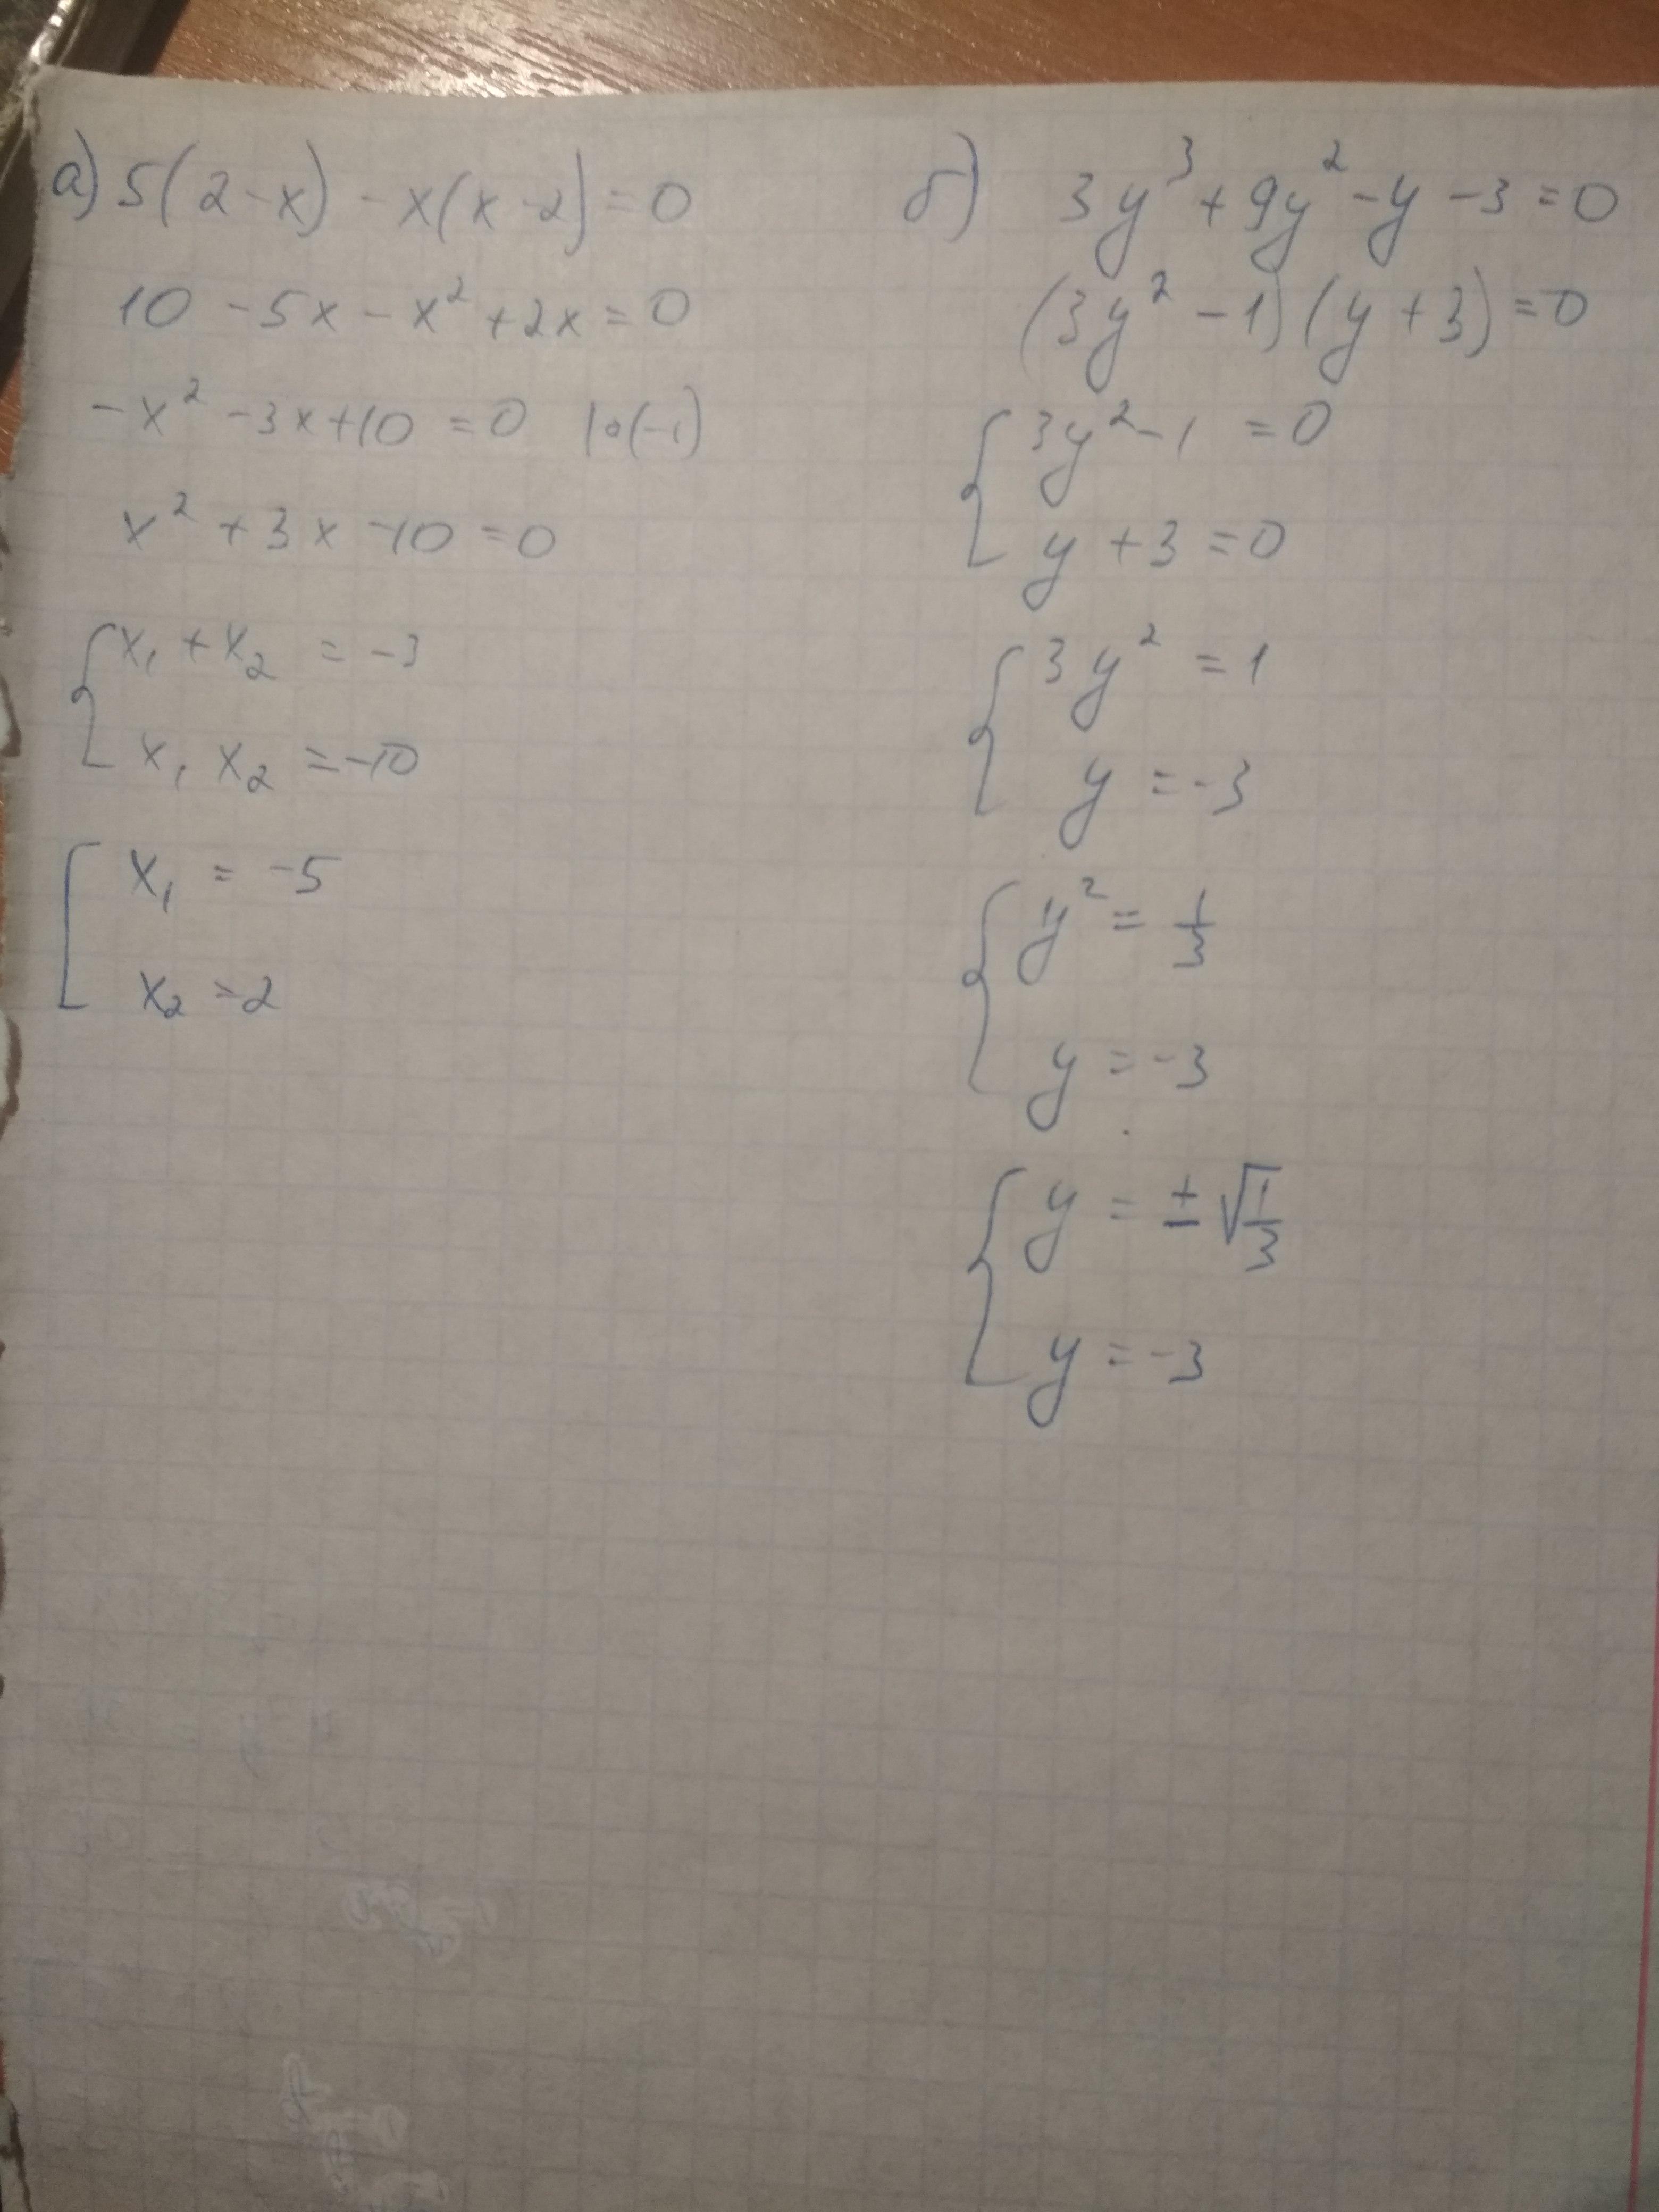 а) 5(2-x) - x(x-2) = 0
10 - 5x - x² + 2x = 0
-x² - 3x + 10 = 0 |∘(-1)
x² + 3x - 10 = 0
{ x₁ + x₂ = -3
x₁ x₂ = -10
[ x₁ = -5
x₂ = 2
б) 3y³ + 9y² - y - 3 = 0
(3y² - 1)(y + 3) = 0
{ 3y² - 1 = 0
y + 3 = 0
{ 3y² = 1
y = -3
{ y² = 1/3
y = -3
{ y = ± √1/3
y = -3